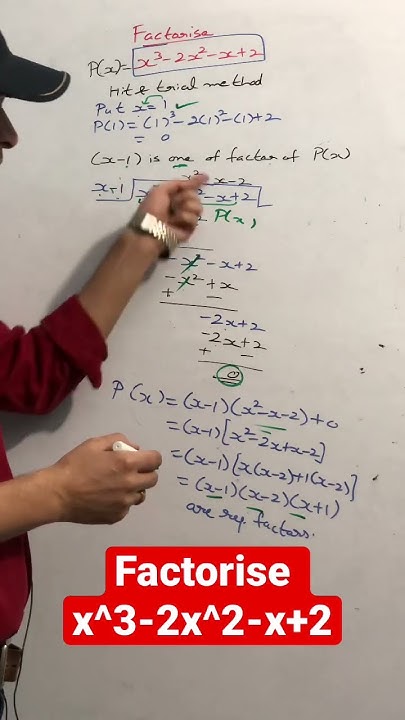 Factorise
P(x)= x³-2x²-x+2
Hit & trial method
Put x=1 ✓
P(1)=(1)³-2(1)²-(1)+2
= 0
(x-1) is one of factor of P(x)
x²-x-2
x-1 -x+2
P(x)
-x²-x+2
-x²+x
+ -
-2x+2
-2x+2
+ -
0
P(x)=(x-1)(x²-x-2)+0
=(x-1)[x²-2x+x-2]
=(x-1)[x(x-2)+1(x-2)]
=(x-1)(x-2)(x+1)
are req factors.
Factorise
x^3-2x^2-x+2